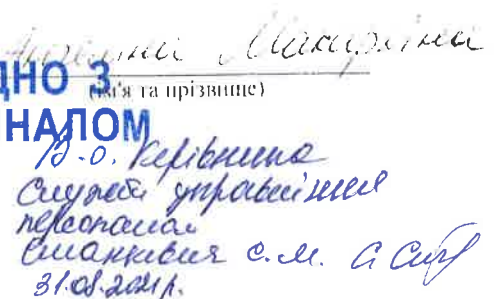 ДНО З
(ім'я та прізвище)
НАЛОМ
В.о. керівника
Служби управління
персоналом
С.М.
31.08.2021р.